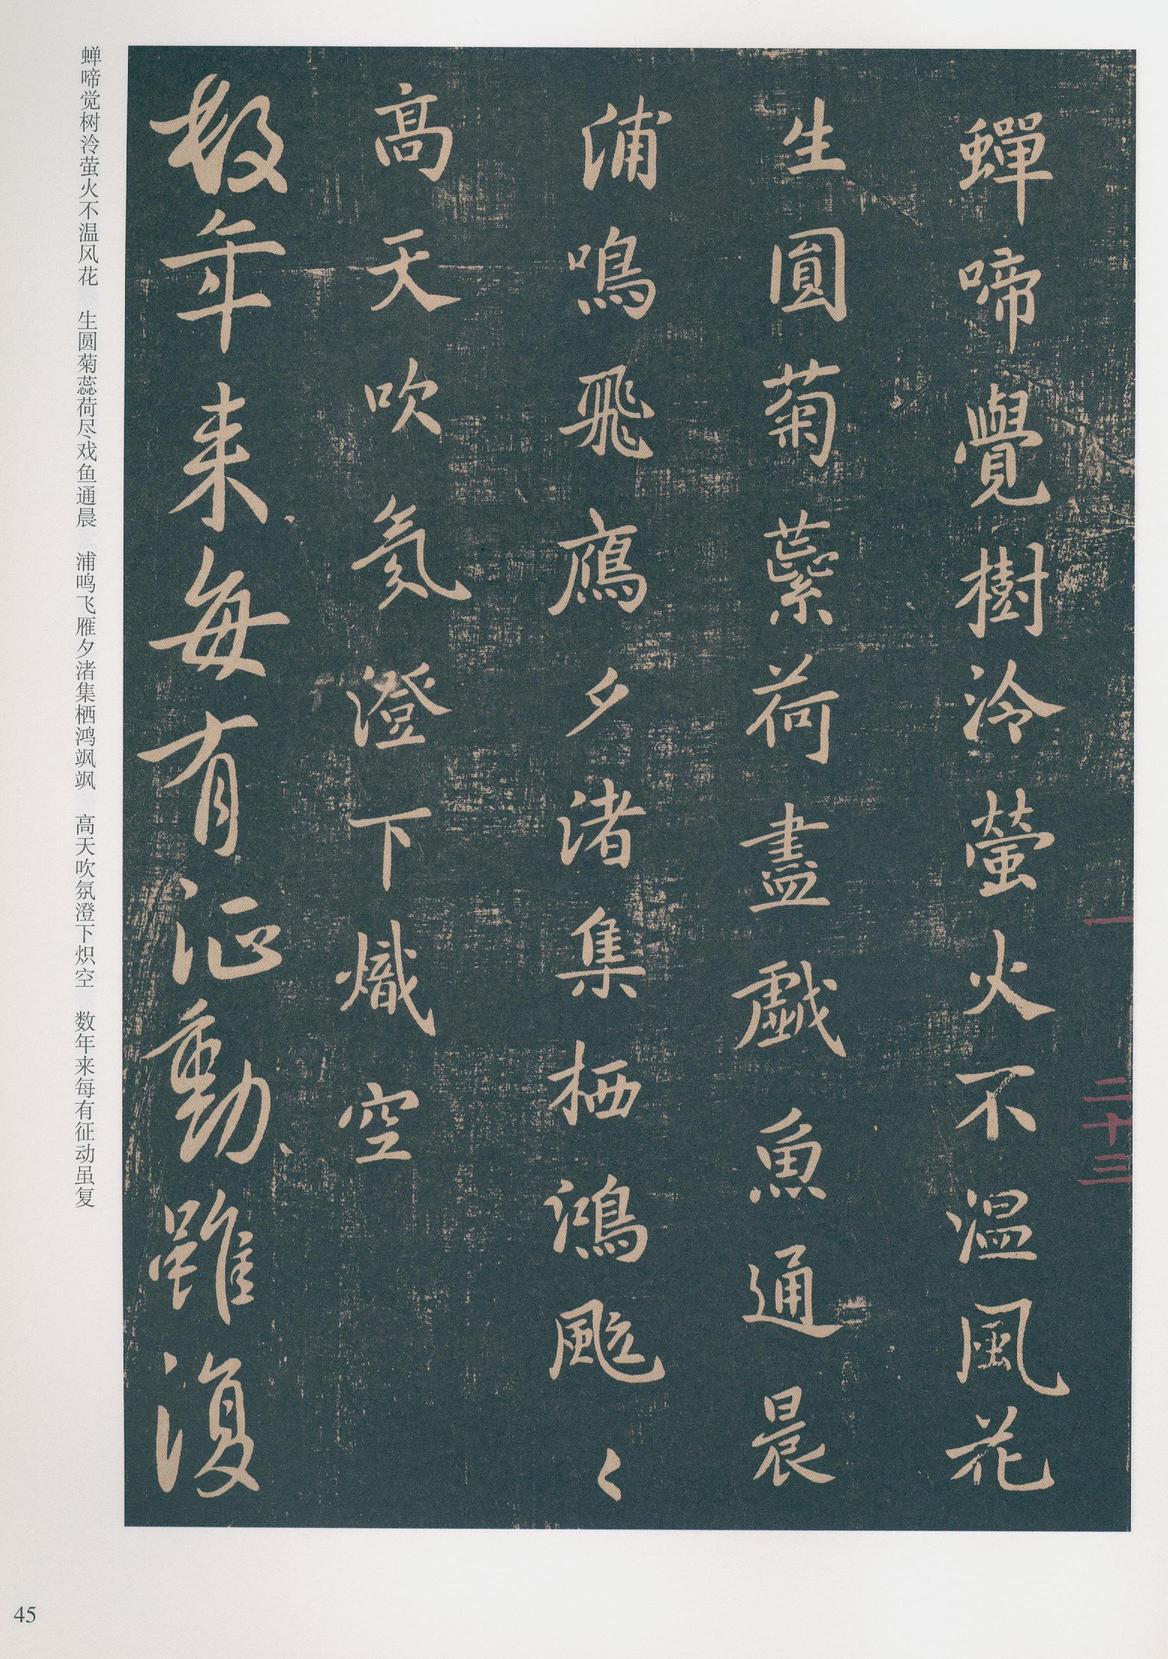 蟬啼覺樹泠螢火不溫風花
生圓菊蘂荷盡戲魚通晨
浦鳴飛鴈夕渚集栖鴻颭〻
高天吹氛澄下熾空
數年来每有征動雖復
一
二十三
蝉啼觉树泠萤火不温风花　生圆菊蕊荷尽戏鱼通晨　浦鸣飞雁夕渚集栖鸿飒飒　高天吹氛澄下炽空　数年来每有征动虽复
45